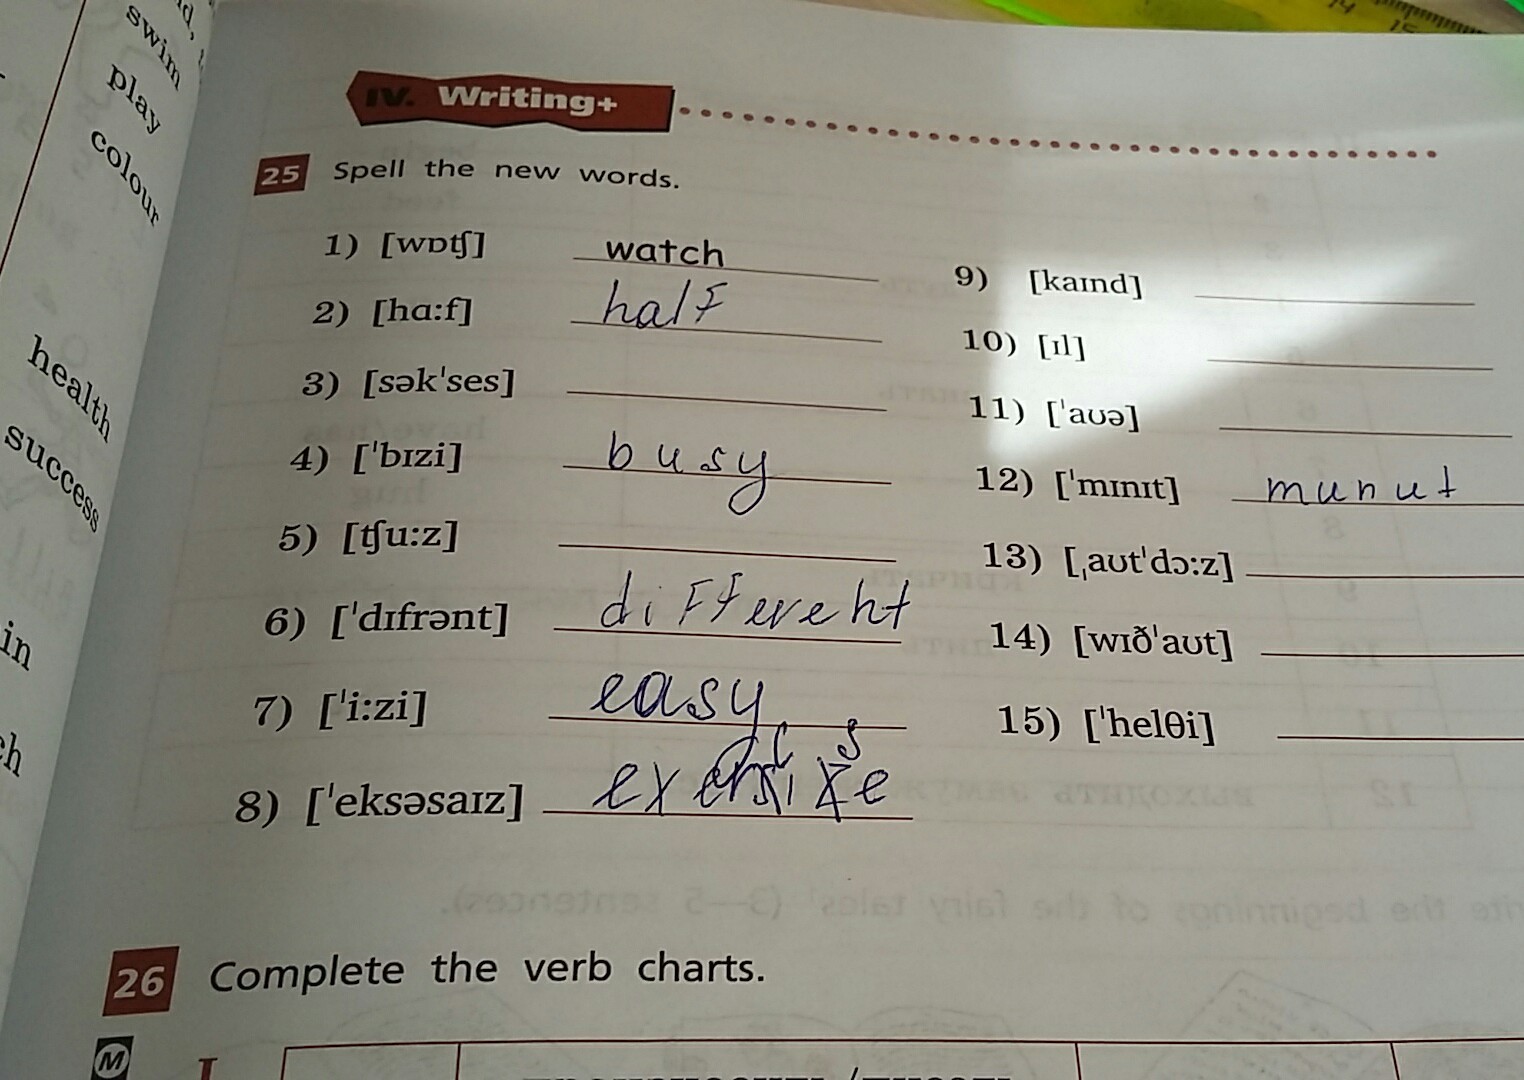 swim
play
colour
health
success
in
IV. Writing+
25 Spell the new words.
1) [wɒtʃ] watch
2) [hɑ:f] half
3) [sək'ses]
4) ['bɪzi] busy
5) [tʃu:z]
6) ['dɪfrənt] different
7) ['i:zi] easy
8) ['eksəsaɪz]
9) [kaɪnd]
10) [ɪl]
11) ['aʊə]
12) ['mɪnɪt] munut
13) [ˌaʊt'dɔ:z]
14) [wɪð'aʊt]
15) ['helθi]
26 Complete the verb charts.
M
I
14
15